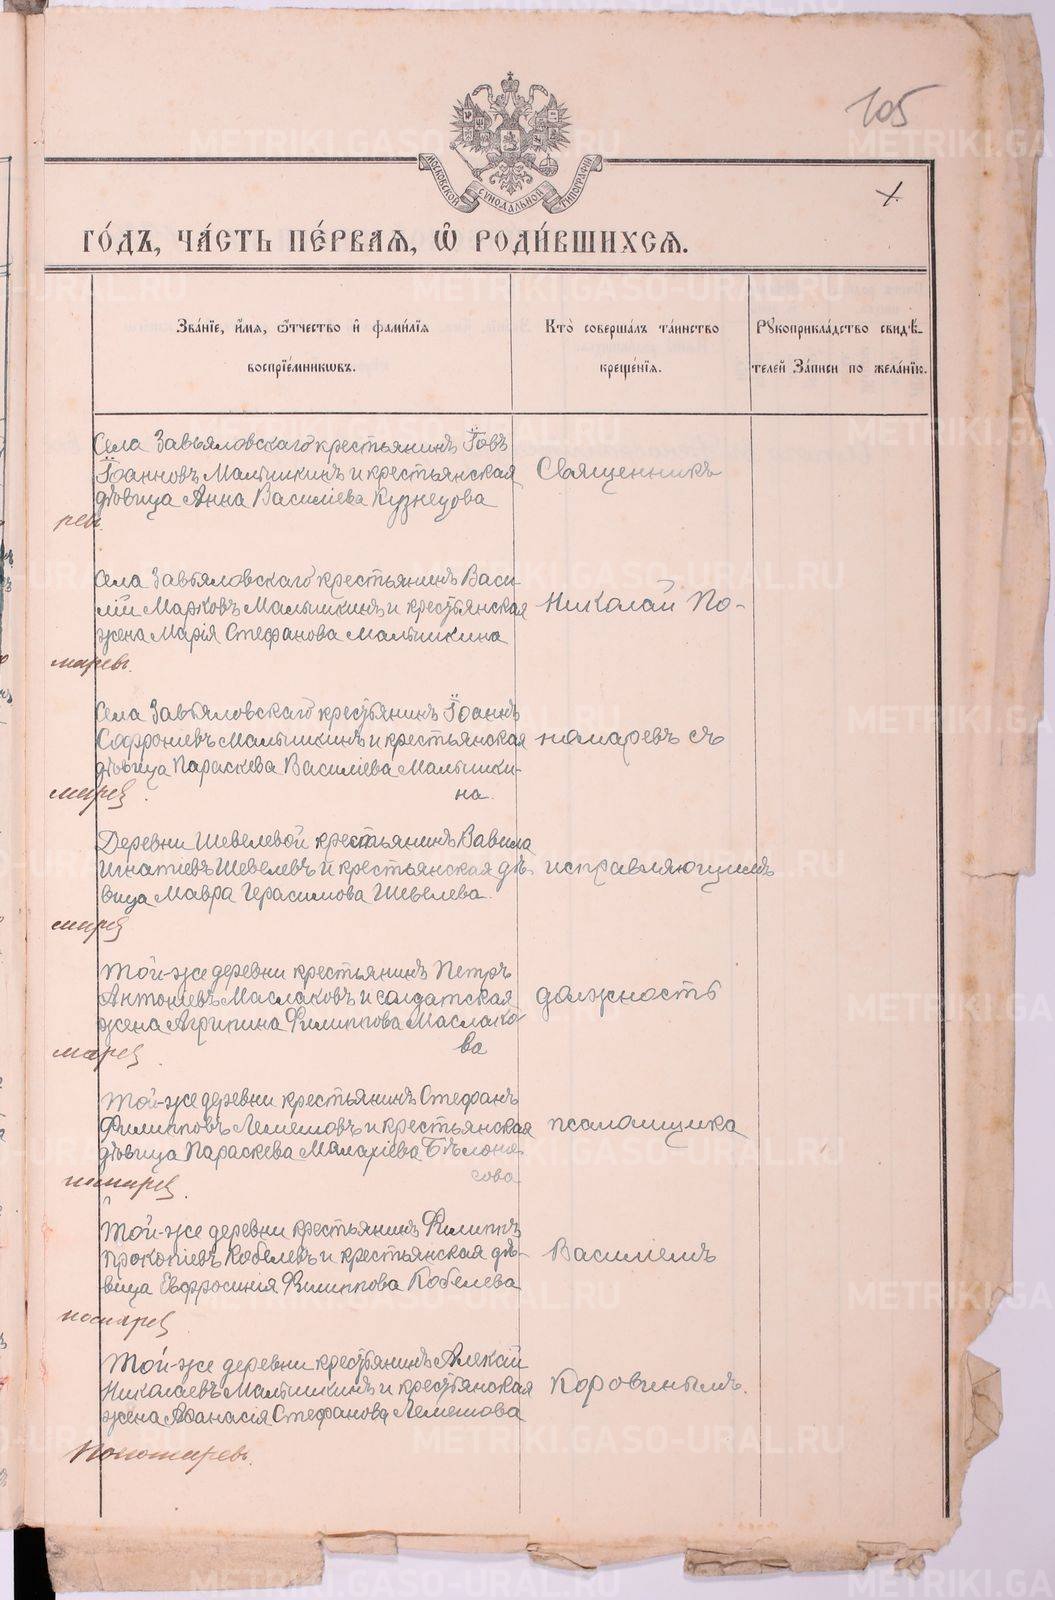 105
МОСКОВСКОЙ СѴНОДАЛЬНОЙ ТИПОГРАФІИ
х
ГО́ДЪ, ЧА́СТЬ ПЕ́РВАѦ, Ѡ҆ РОДИ́ВШИХСѦ.
Зва́нїе, и҆́мя, ѻ҆́тчество и҆ фами́лїя
воспрїе́мникѡвъ.
Кто̀ соверша́лъ та́инство
креще́нїя.
Рꙋкоприкла́дство свидѣ́-
телей За́писи по жела́нїю.
Села Завьяловскаго крестьянинъ Іовъ
Іоанновъ Малышкинъ и крестьянская
дѣвица Анна Василіева Кузнецова
Священникъ
рев.
Села Завьяловскаго крестьянинъ Васи-
лій Марковъ Малышкинъ и крестьянская
жена Марія Стефанова Малышкина
Николай По-
марев.
Села Завьяловскаго крестьянинъ Іоаннъ
Софроніевъ Малышкинъ и крестьянская
дѣвица Параскева Василіева Малышки-
на.
номаревъ съ
марев
Деревни Шевелевой крестьянинъ Вавила
Игнатіевъ Шевелевъ и крестьянская дѣ-
вица Мавра Герасимова Шевелева.
исправляющимъ
марев
Той-же деревни крестьянинъ Петръ
Антоніевъ Маслаковъ и солдатская
жена Агрипина Филиппова Маслако-
ва
должность
марев.
Той-же деревни крестьянинъ Стефанъ
Филипповъ Лемешовъ и крестьянская
дѣвица Параскева Малахіева Бѣлоно-
сова
псаломщика
Той-же деревни крестьянинъ Филиппъ
Прокопіевъ Кобелевъ и крестьянская дѣ-
вица Евфросинія Филиппова Кобелева
Василіемъ
Той-же деревни крестьянинъ Алексій
Николаевъ Малышкинъ и крестьянская
жена Аѳанасія Стефанова Лемешова
Коровинымъ.
Пономарев.
METRIKI.GASO-URAL.RU